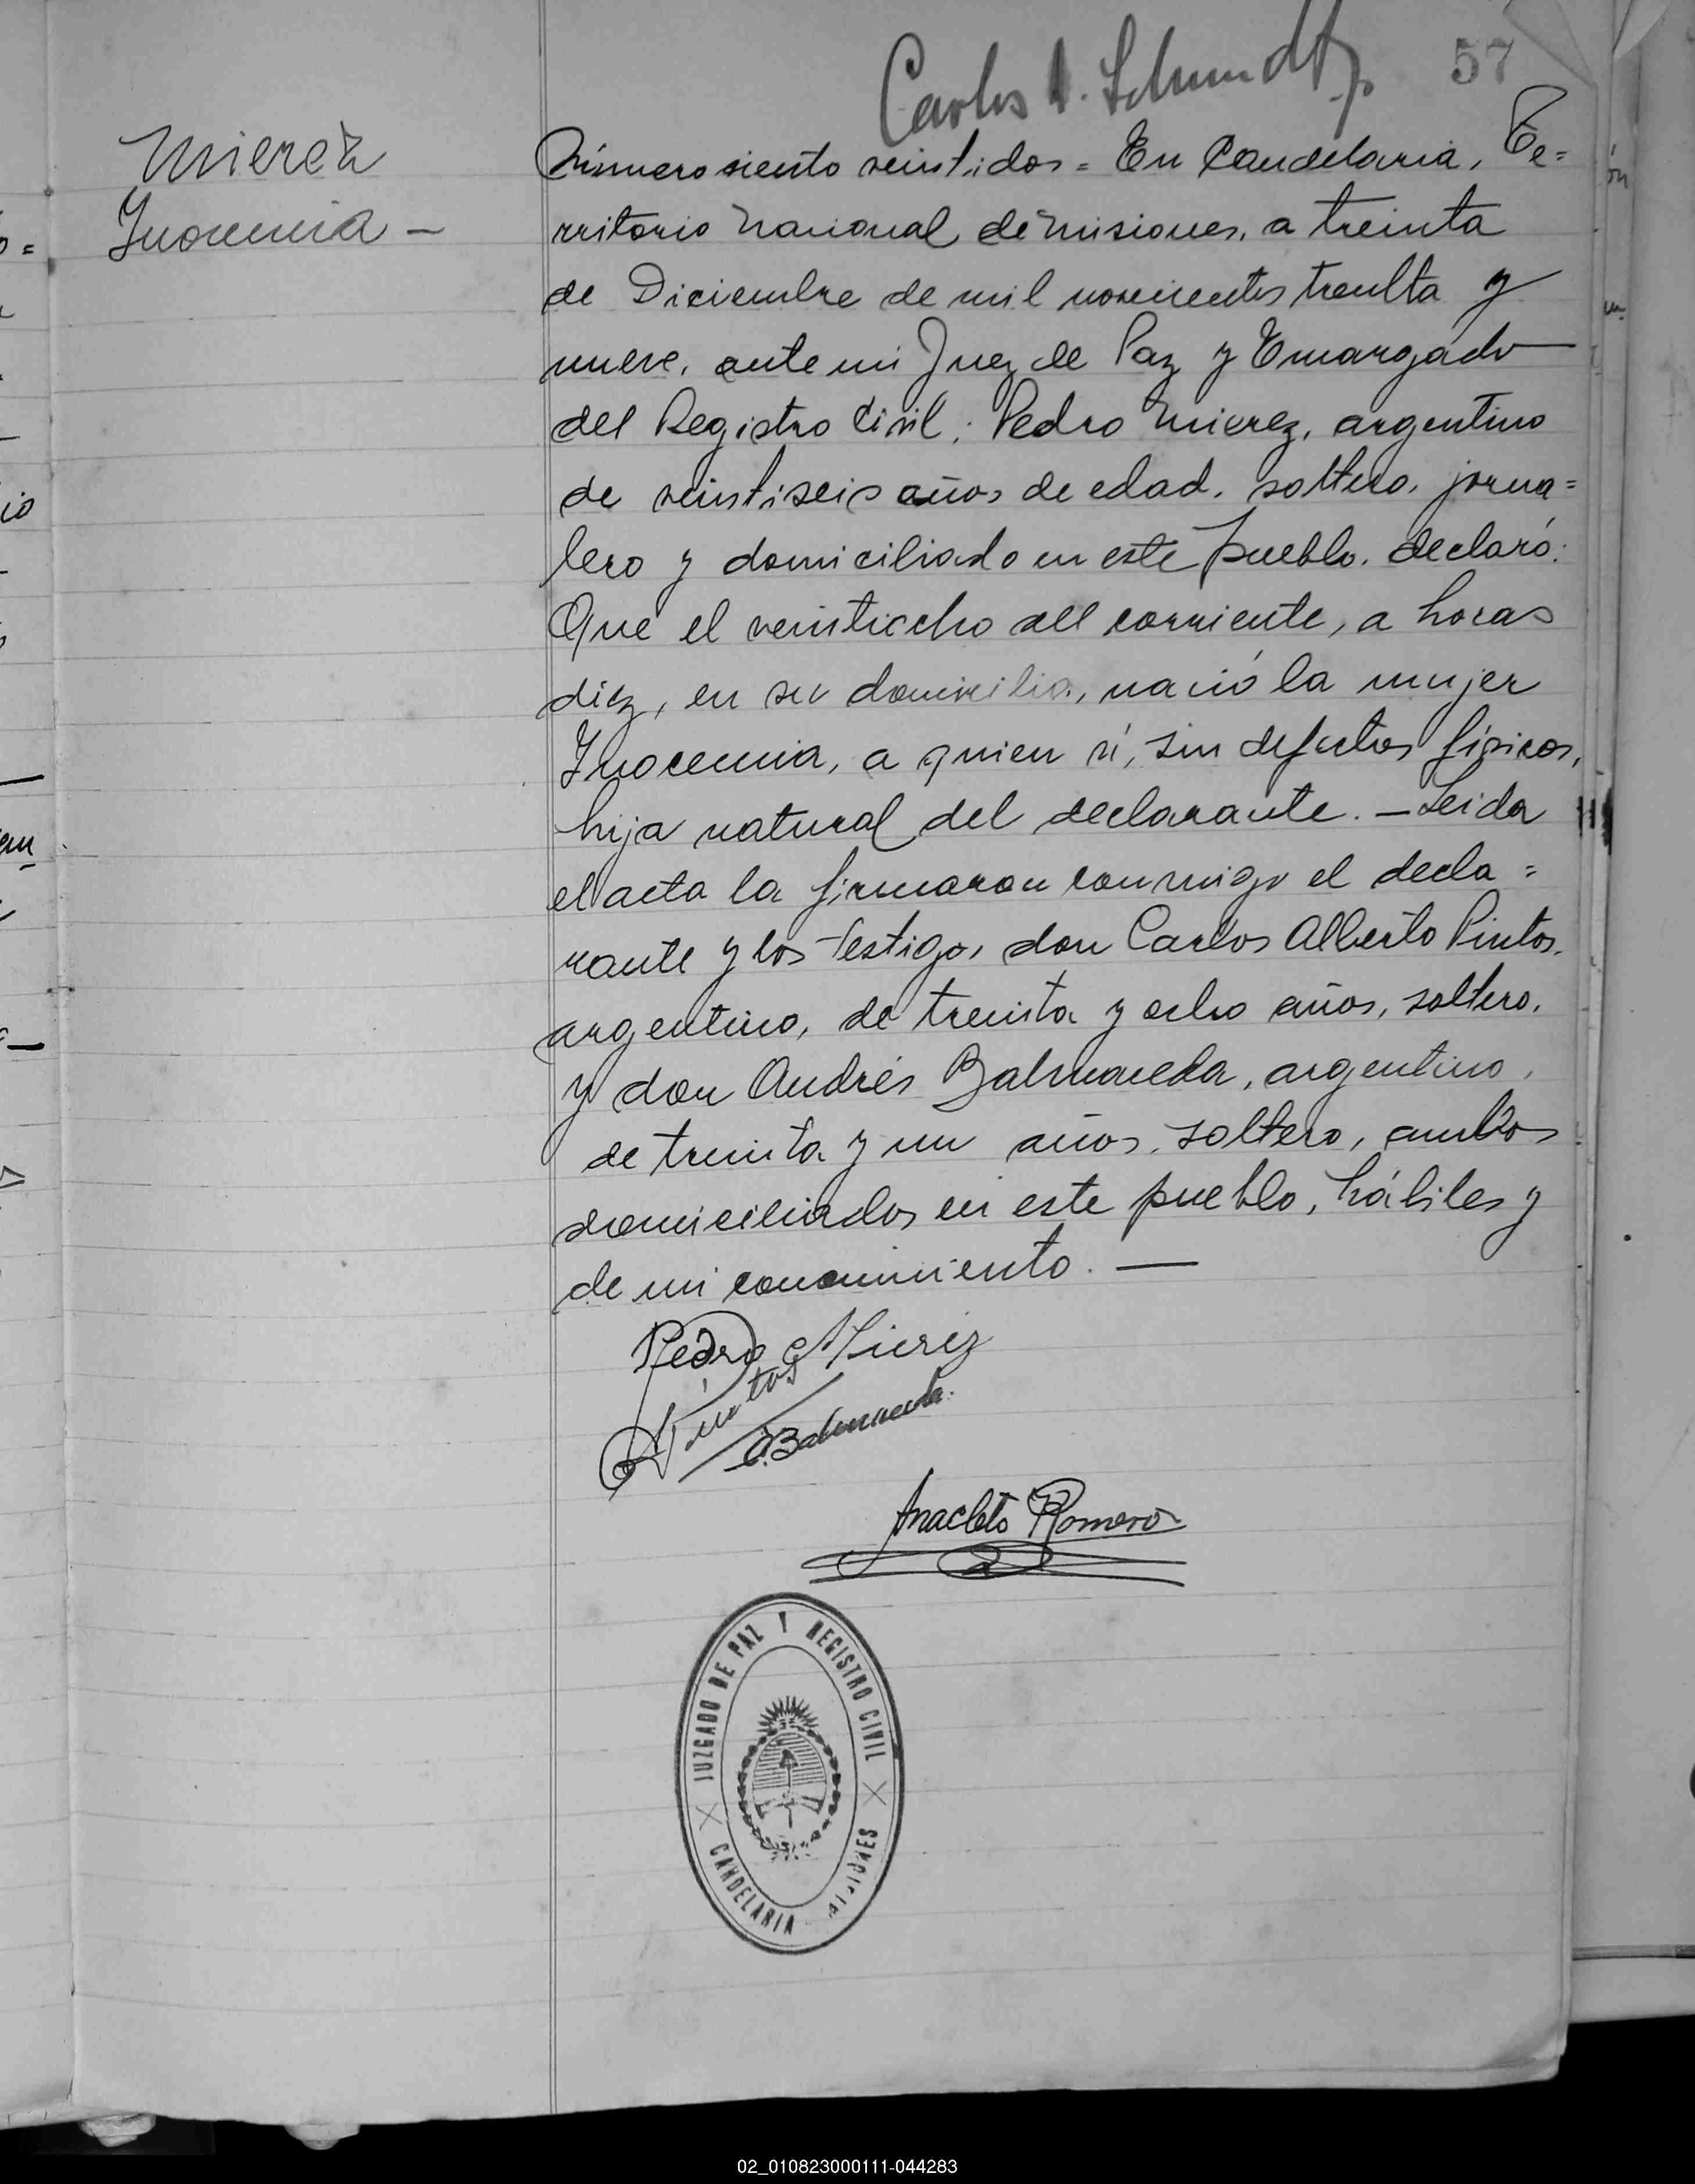 Carlos A. Schmidt
57
Mierez
Inocencia -
Número siento veintidos = En Candelaria, Te=
rritorio Nacional de Misiones, a treinta
de Diciembre de mil novecientos treinta y
nueve, ante mi Juez de Paz y Encargado
del Registro Civil; Pedro Mierez, argentino
de veintiseis años de edad, soltero, jorna=
lero y domiciliado en este pueblo, declaró:
Que el veintiocho del corriente, a horas
diez, en su domicilio, nació la mujer
Inocencia, a quien ví, sin defectos físicos,
hija natural del declarante. - Leida
el acta la firmaron conmigo el decla=
rante y los testigos don Carlos Alberto Pintos,
argentino, de treinta y ocho años, soltero,
y don Andrés Balmaceda, argentino,
de treinta y un años, soltero, ambos
domiciliados en este pueblo, hábiles y
de mi conocimiento. —
Pedro Mierez
Pintos
A. Balmaceda
Anacleto Romero
JUZGADO DE PAZ Y REGISTRO CIVIL
CANDELARIA MISIONES
02_010823000111-044283